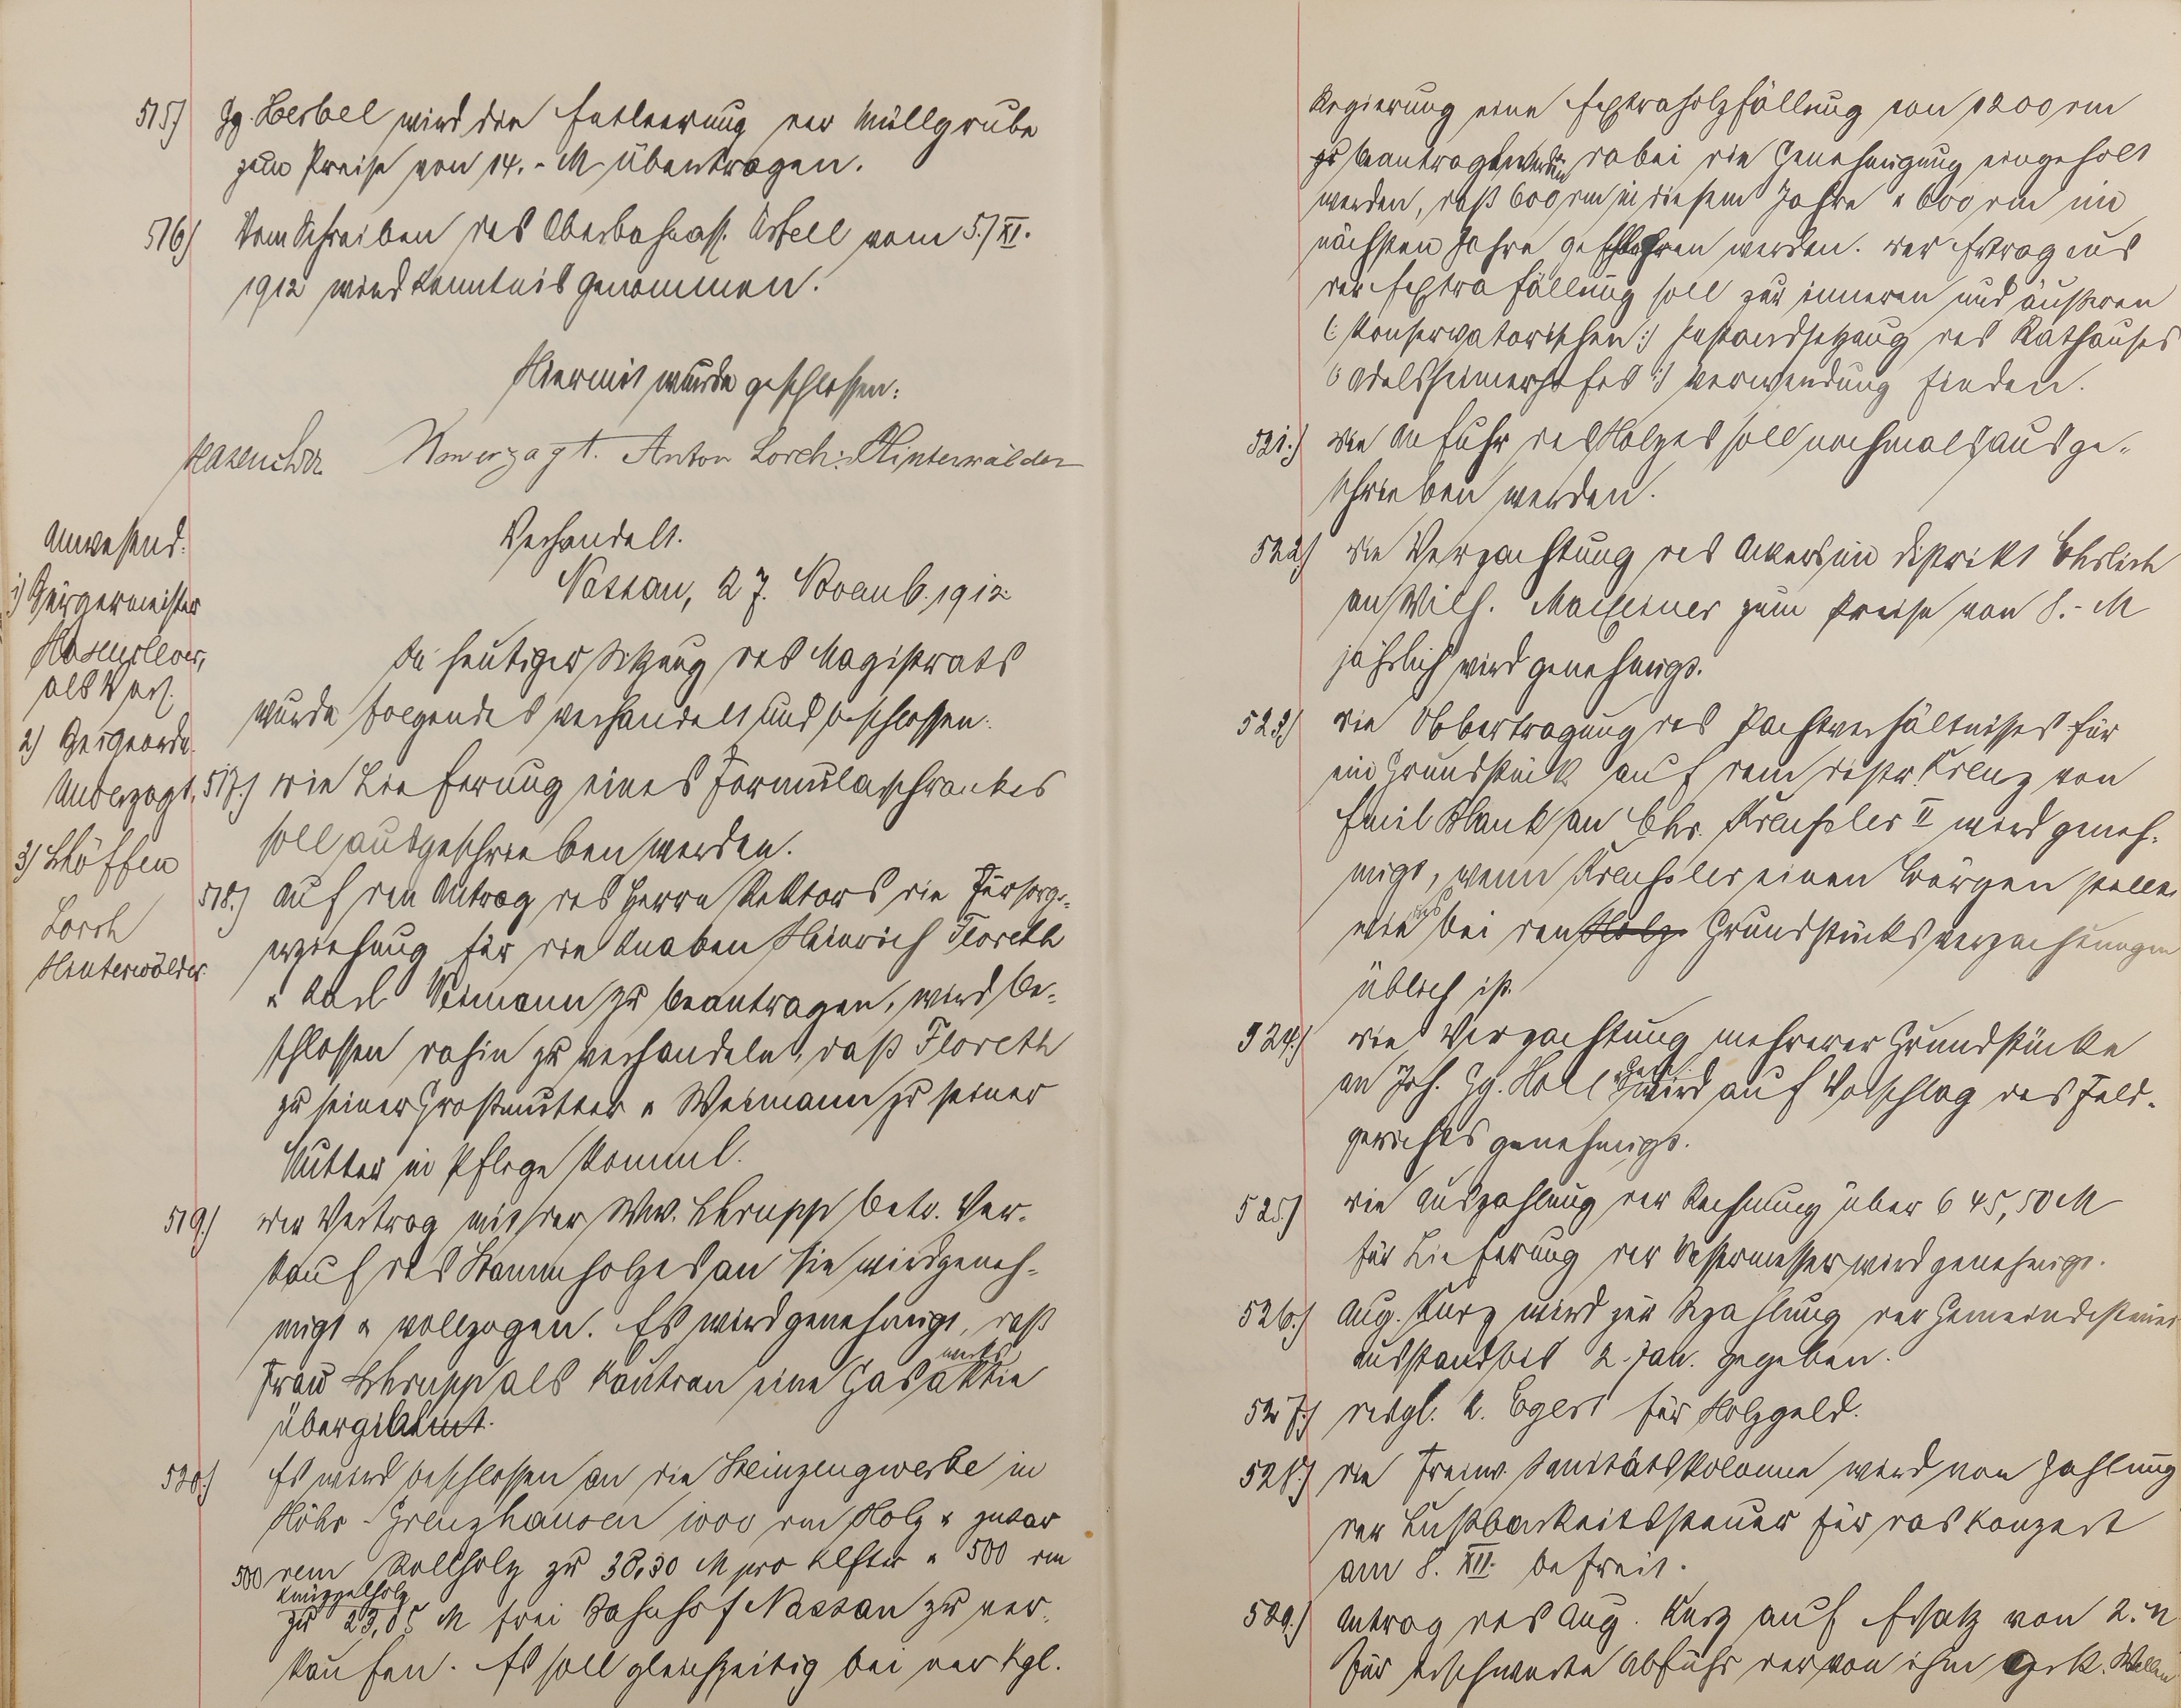 515) Jg. Herbel wird die Entleerung der Müllgrube
zum Preise von 14.- M übertragen.
516) Vom Schreiben des Oberbahnass. Assell vom 5./XI.
1912 wird Kenntnis genommen.
Hiermit wurde geschlossen:
Hasenclever Unverzagt. Anton Lorch. Hinterwälder
Anwesend:
1) Bürgermeister
Hasenclever,
als Vors.
2) Beigeordn.
Unverzagt,
3) Schöffen
Lorch
Hinterwälder
Verhandelt.
Nassau, 27. Novemb. 1912.
In heutiger Sitzung des Magistrats
wurde folgendes verhandelt und beschlossen:
517.) Die Lieferung eines Formularschrankes
soll ausgeschrieben werden.
518.) Auf den Antrag des Herrn Rektors die Fürsorge-
erziehung für die Knaben Heinrich Floreth
u Karl Weimann zu beantragen, wird be-
schlossen dahin zu verhandeln, daß Floreth
zu seiner Großmutter u Weimann zu seiner
Mutter in Pflege kommt.
519.) Der Vertrag mit der Ww. Schrupp betr. Ver-
kauf des Stammholzes an sie wird geneh-
migt u vollzogen. Es wird genehmigt, daß
Frau Schrupp als Kaution eine Gaswerksaktie
übergibt.
520.) Es wird beschlossen an die Steinzeugwerke in
Höhr-Grenzhausen 1000 rm Holz u zwar
500 rm Rollholz zu 38,30 M pro Klfter u 500 rm
Knüppelholz
zu 23,05 M frei Bahnhof Nassau zu ver-
kaufen. Es soll gleichzeitig bei der Kgl.
Regierung eine Extraholzfällung von 1200 rm
zu beantragt werden dabei die Genehmigung eingeholt
werden, daß 600 rm in diesem Jahre u 600 rm im
nächsten Jahre gefahren werden. Der Ertrag aus
der Extrafällung soll zur inneren und äußeren
(: konservatorischen :) Instandsetzung des Rathauses
(: Adelsheimerhofes :) Verwendung finden.
521.) Die Anfuhr des Holzes soll nochmals ausge-
schrieben werden.
522.) Die Verpachtung des Ackers im Distrikt Ehrlich
an Wilh. Macheiner zum Preise von 8.- M
jährlich wird genehmigt.
523.) Die Übertragung des Pachtverhältnisses für
ein Grundstück auf dem Distr. Kreuz von
Emil Blank an Chr. Kreuseler II wird geneh-
migt, wenn Kreuseler einen Bürgen stellt
wie dies bei den Holz- Grundstücksverpachtungen
üblich ist.
524.) Die Verpachtung mehrerer Grundstücke
an Joh. Gg. Holl wird auf Vorschlag des Feld-
gerichts genehmigt.
525.) Die Auszahlung der Rechnung über 645,50 M
für Lieferung der Wassermesser wird genehmigt.
526.) Aug. Kurz wird zur Bezahlung der Gemeindesteuer
Ausstand bis 2. Jan. gegeben.
527.) desgl. K. Egert für Holzgeld.
528.) Die Freiw. Sanitätskolonne wird von Zahlung
der Lustbarkeitssteuer für das Konzert
am 8. XII. befreit.
529.) Antrag des Aug. Kurz auf Ersatz von 2.- M
für erschwerte Abfuhr der von ihm gek. Wellen